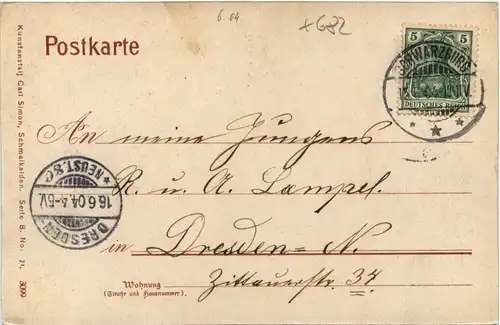 6.04
+682
Postkarte
5 5
DEUTSCHES REICH
SCHWARZBURG
An meine Jungens
R. u. A. Lampel.
in Dresden-N.
Wohnung
(Straße und Hausnummer).
Zittauerstr. 34
* NEUST. 8 c
16.6.04. 4-5V.
DRESDEN-
Kunstanstalt Carl Simon, Schmalkalden. Serie B. No. 71. 3090